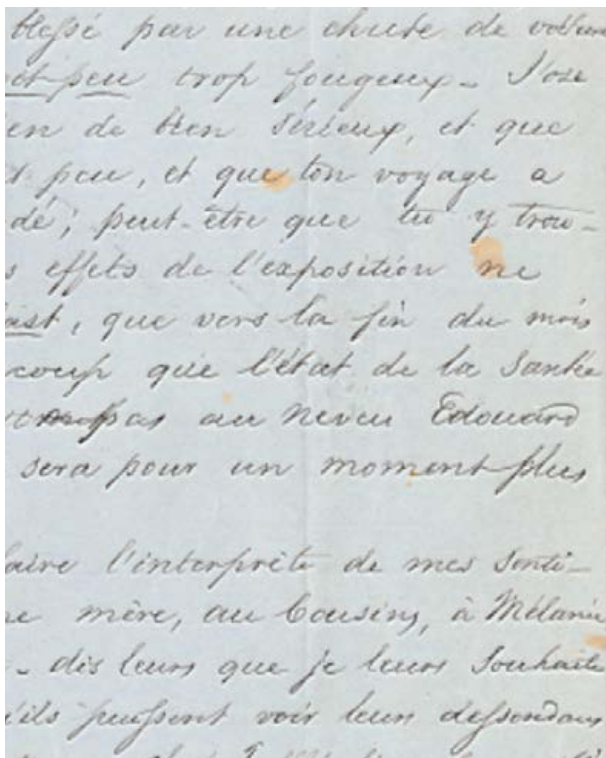 blessé par une chute de voiture
et-peu trop fougeux - J'ose
en de bien sérieux, et que
peu, et que ton voyage a
dé; peut-être que tu y trou-
s effets de l'exposition ne
que vers la fin du mois
coup que l'état de la Santé
pas au neveu Edouard
sera pour un moment plus
faire l'interprête de mes Senti-
mère, au Cousins, à Mélanie
- dis leurs que je leurs Souhaite
'ils puissent voir leurs dessendans